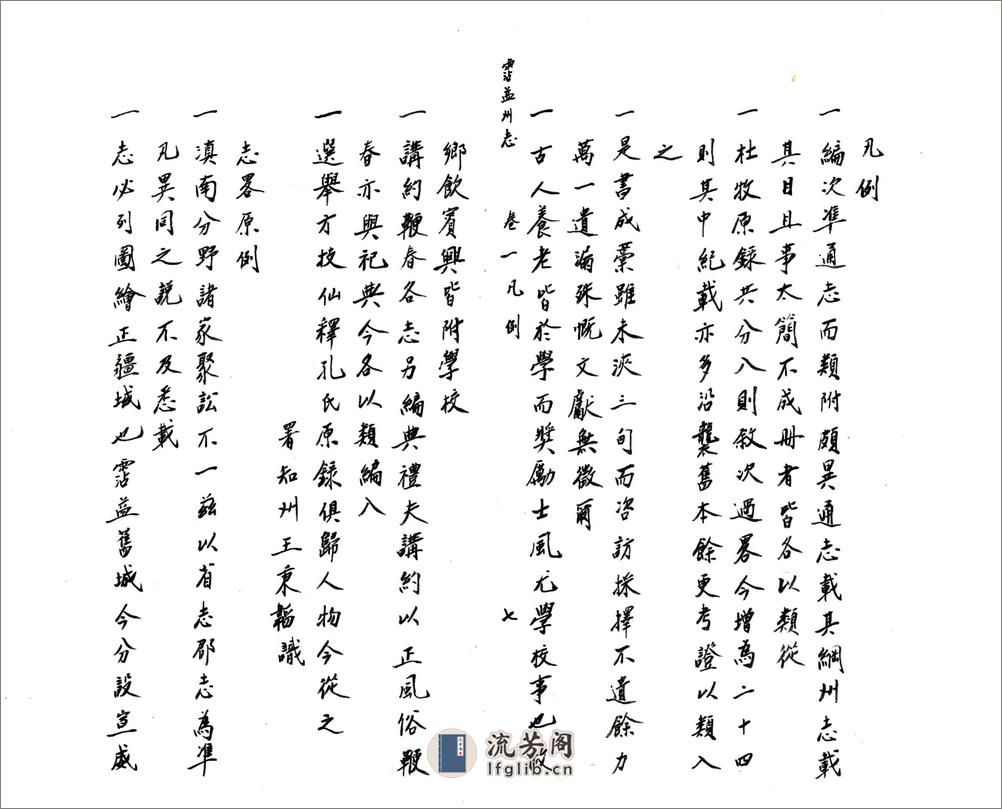 凡例
一編次準通志而類附頗異通志載其綱州志載
其目且事太簡不成冊者皆各以類從
一杜牧原錄共分八則敘次過畧今增為二十四
則其中紀載亦多沿襲舊本餘更考證以類入
之
一是書成藁雖未浹三旬而咨訪採擇不遺餘力
萬一遺漏殊慨文獻無徵爾
一古人養老皆於學而獎勵士風尤學校事也故
霑益州志 卷一凡例 七
鄉飲賓興皆附學校
一講約鞭春各志另編典禮夫講約以正風俗鞭
春亦與祀典今各以類編入
一選舉方技仙釋孔氏原錄俱歸人物今從之
署知州王秉韜識
志畧原例
一滇南分野諸家聚訟不一茲以省志郡志為準
凡異同之說不及悉載
一志必列圖繪正疆域也霑益舊城今分設宣威
流芳阁
lfglib.cn